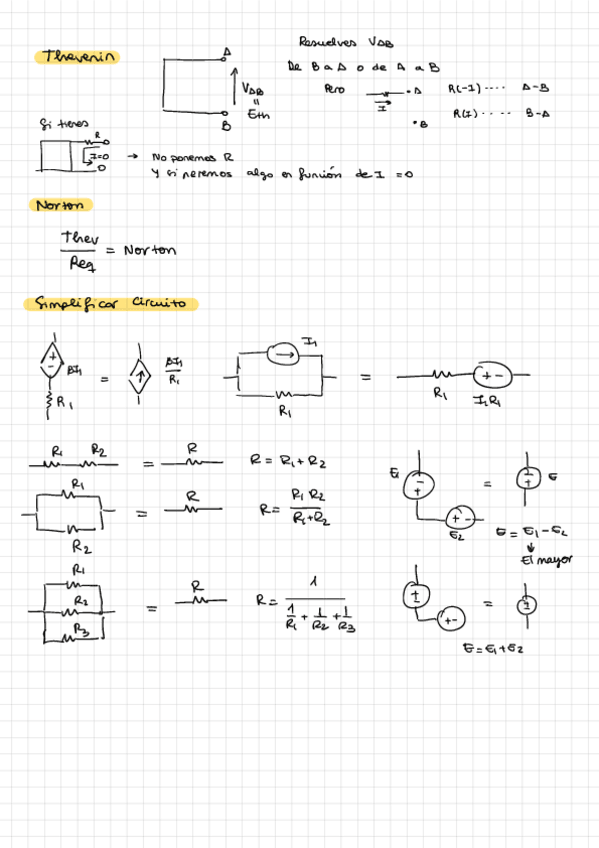 Thevenin
A
V_AB
=
Eth
B
Resuelves V_AB
De B a A o de A a B
Pero
I
• A
• B
R(-I) .... A-B
R(I) .... B-A
Si tienes
R
I=0
→ No ponemos R
Y si tenemos algo en función de I = 0
Norton
Thev
Req
= Norton
Simplificar Circuito
+
-
βI₁
R₁
=
βI₁
R₁
I₁
R₁
=
+ -
R₁
I₁R₁
R₁ R₂
=
R
R = R₁ + R₂
R₁
R₂
=
R
R =
R₁ R₂
R₁+R₂
E₁
-
+
+ -
E₂
=
±
E
E = E₁ - E₂
↓
El mayor
R₁
R₂
R₃
=
R
R =
1
1/R₁ + 1/R₂ + 1/R₃
±
+-
=
±
E = E₁ + E₂